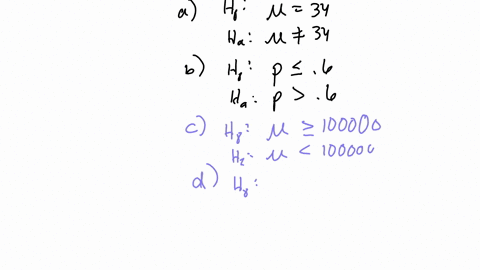 a) H₀: μ = 34
Hₐ: μ ≠ 34
b) H₀: p ≤ .6
Hₐ: p > .6
c) H₀: μ ≥ 100000
Hₐ: μ < 100000
d) H₀: